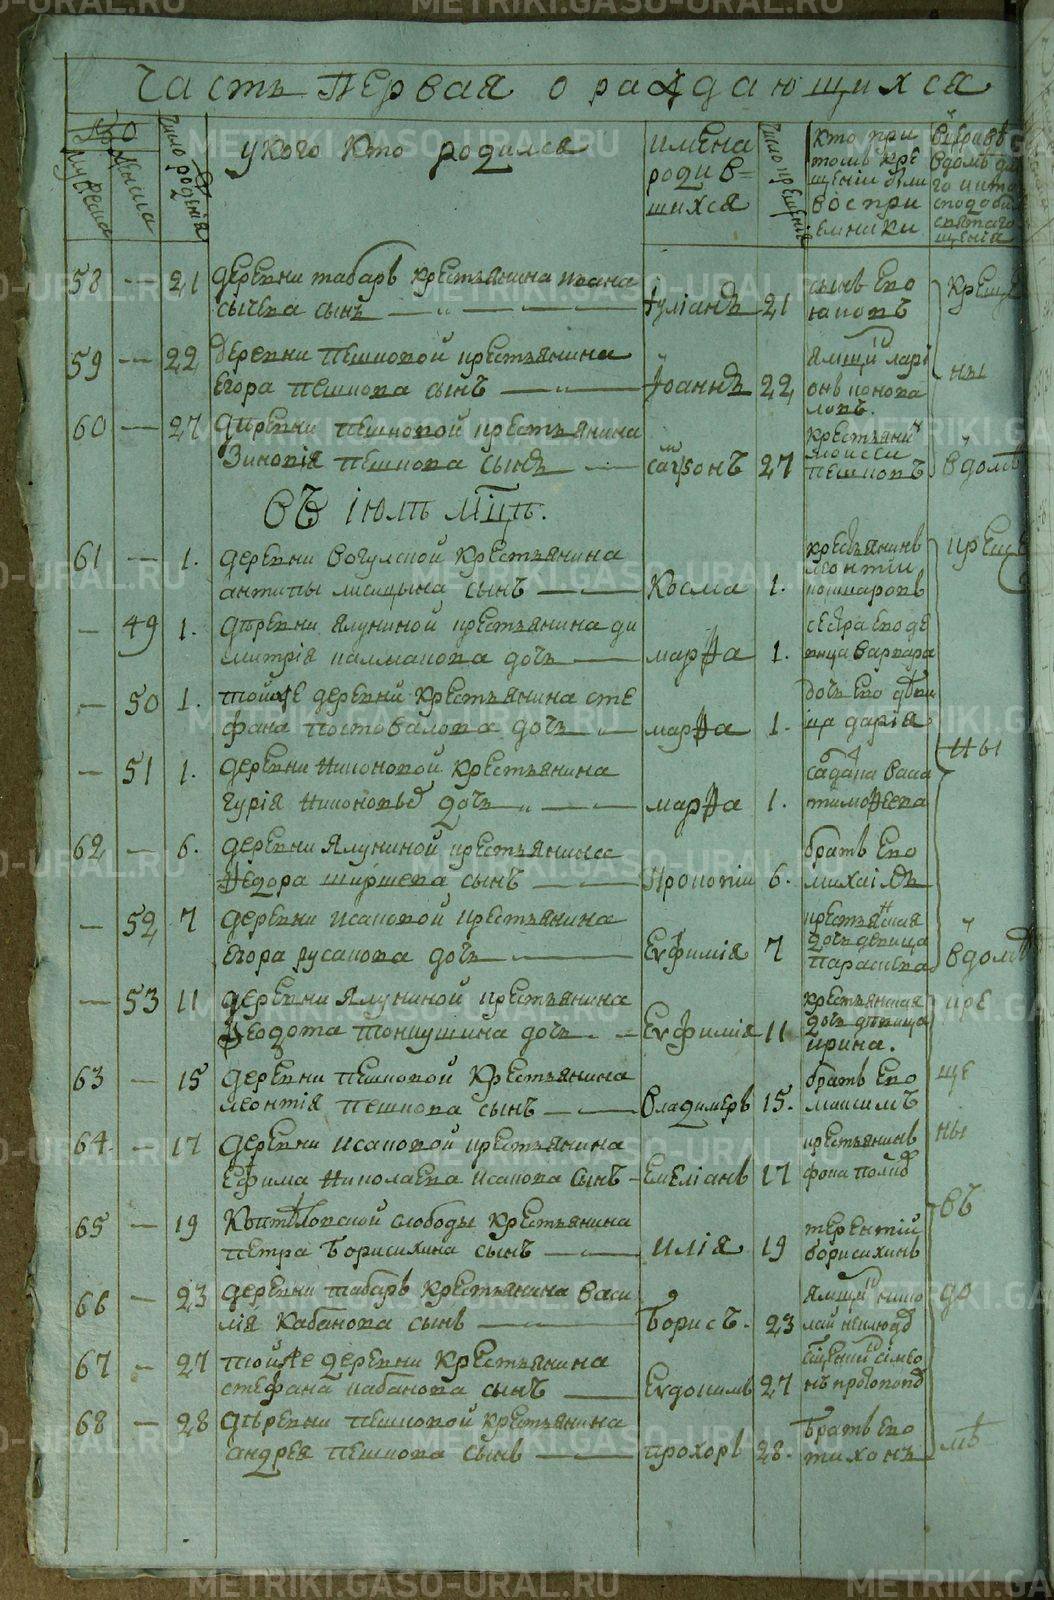 Часть Первая о раждающихся
№ о
Мужеска
Женска
Число рожденія
у кого кто родился
имена родив=
шихся
Число крещенія
кто при
томъ кре
щеніи были
воспри
емники
58 — 21 деревни табаръ крестьянина ивана
сычева сынъ — „ — Іуліанъ 21 сынъ Его
59 — 22 деревни пешковой крестьянина
Егора пешкова сынъ — „ — Іоаннъ 22
60 — 27 дѣревни пешковой крестьянина
Зиновія пешкова сынъ — самсонъ 27 крестьянинъ
моисеи
пешковъ
въ домѣ
Въ іюлѣ мцѣ.
61 — 1. деревни вогулской крестьянина
антипы лисицына сынъ — Косма 1. крестьянинъ
леонтіи
— 49 1. дѣревни ялуниной крестьянина ди
митрія калмакова дочь — марѳа 1. сестра его де
вица варвара
— 50 1. тойже деревни крестьянина сте
фана постовалова дочь — марѳа 1. дочь его дѣви
ца дарія
— 51 1. деревни никоновой крестьянина
гурія никоновыхъ дочь — „ — марѳа 1.
тимоѳеева
62 — 6. деревни ялуниной крестьянина
Ѳедора ширшева сынъ — прокопіи 6. братъ его
михаілъ
— 52 7 деревни исаковой крестьянина
Егора русакова дочь — Евфимія 7 крестьянская
дочь девица
параскева
въ домѣ
— 53 11 деревни ялуниной крестьянина
Ѳеодота тонкушина дочь — Евфимія 11 крестьянская
дочь дѣвица
ирина.
63 — 15 деревни пешковой крестьянина
леонтія пешкова сынъ — владимеръ 15. братъ его
максимъ
64 — 17 деревни исаковой крестьянина
Ефима николаева исакова сынъ — Емеліанъ 17 крестьянинъ
65 — 19 слободы крестьянина
петра борисихина сынъ — илія 19 терентій
борисихинъ
66 — 23 деревни табаръ крестьянина васи
лія кабанова сынъ — борисъ. 23
67 — 27 тойже деревни крестьянина
стефана кабанова сынъ — Евдокимъ 27
68 — 28 дѣревни пешковой крестьянина
андрея пешкова сынъ — прохоръ 28. братъ его
тихонъ
METRIKI.GASO-URAL.RU